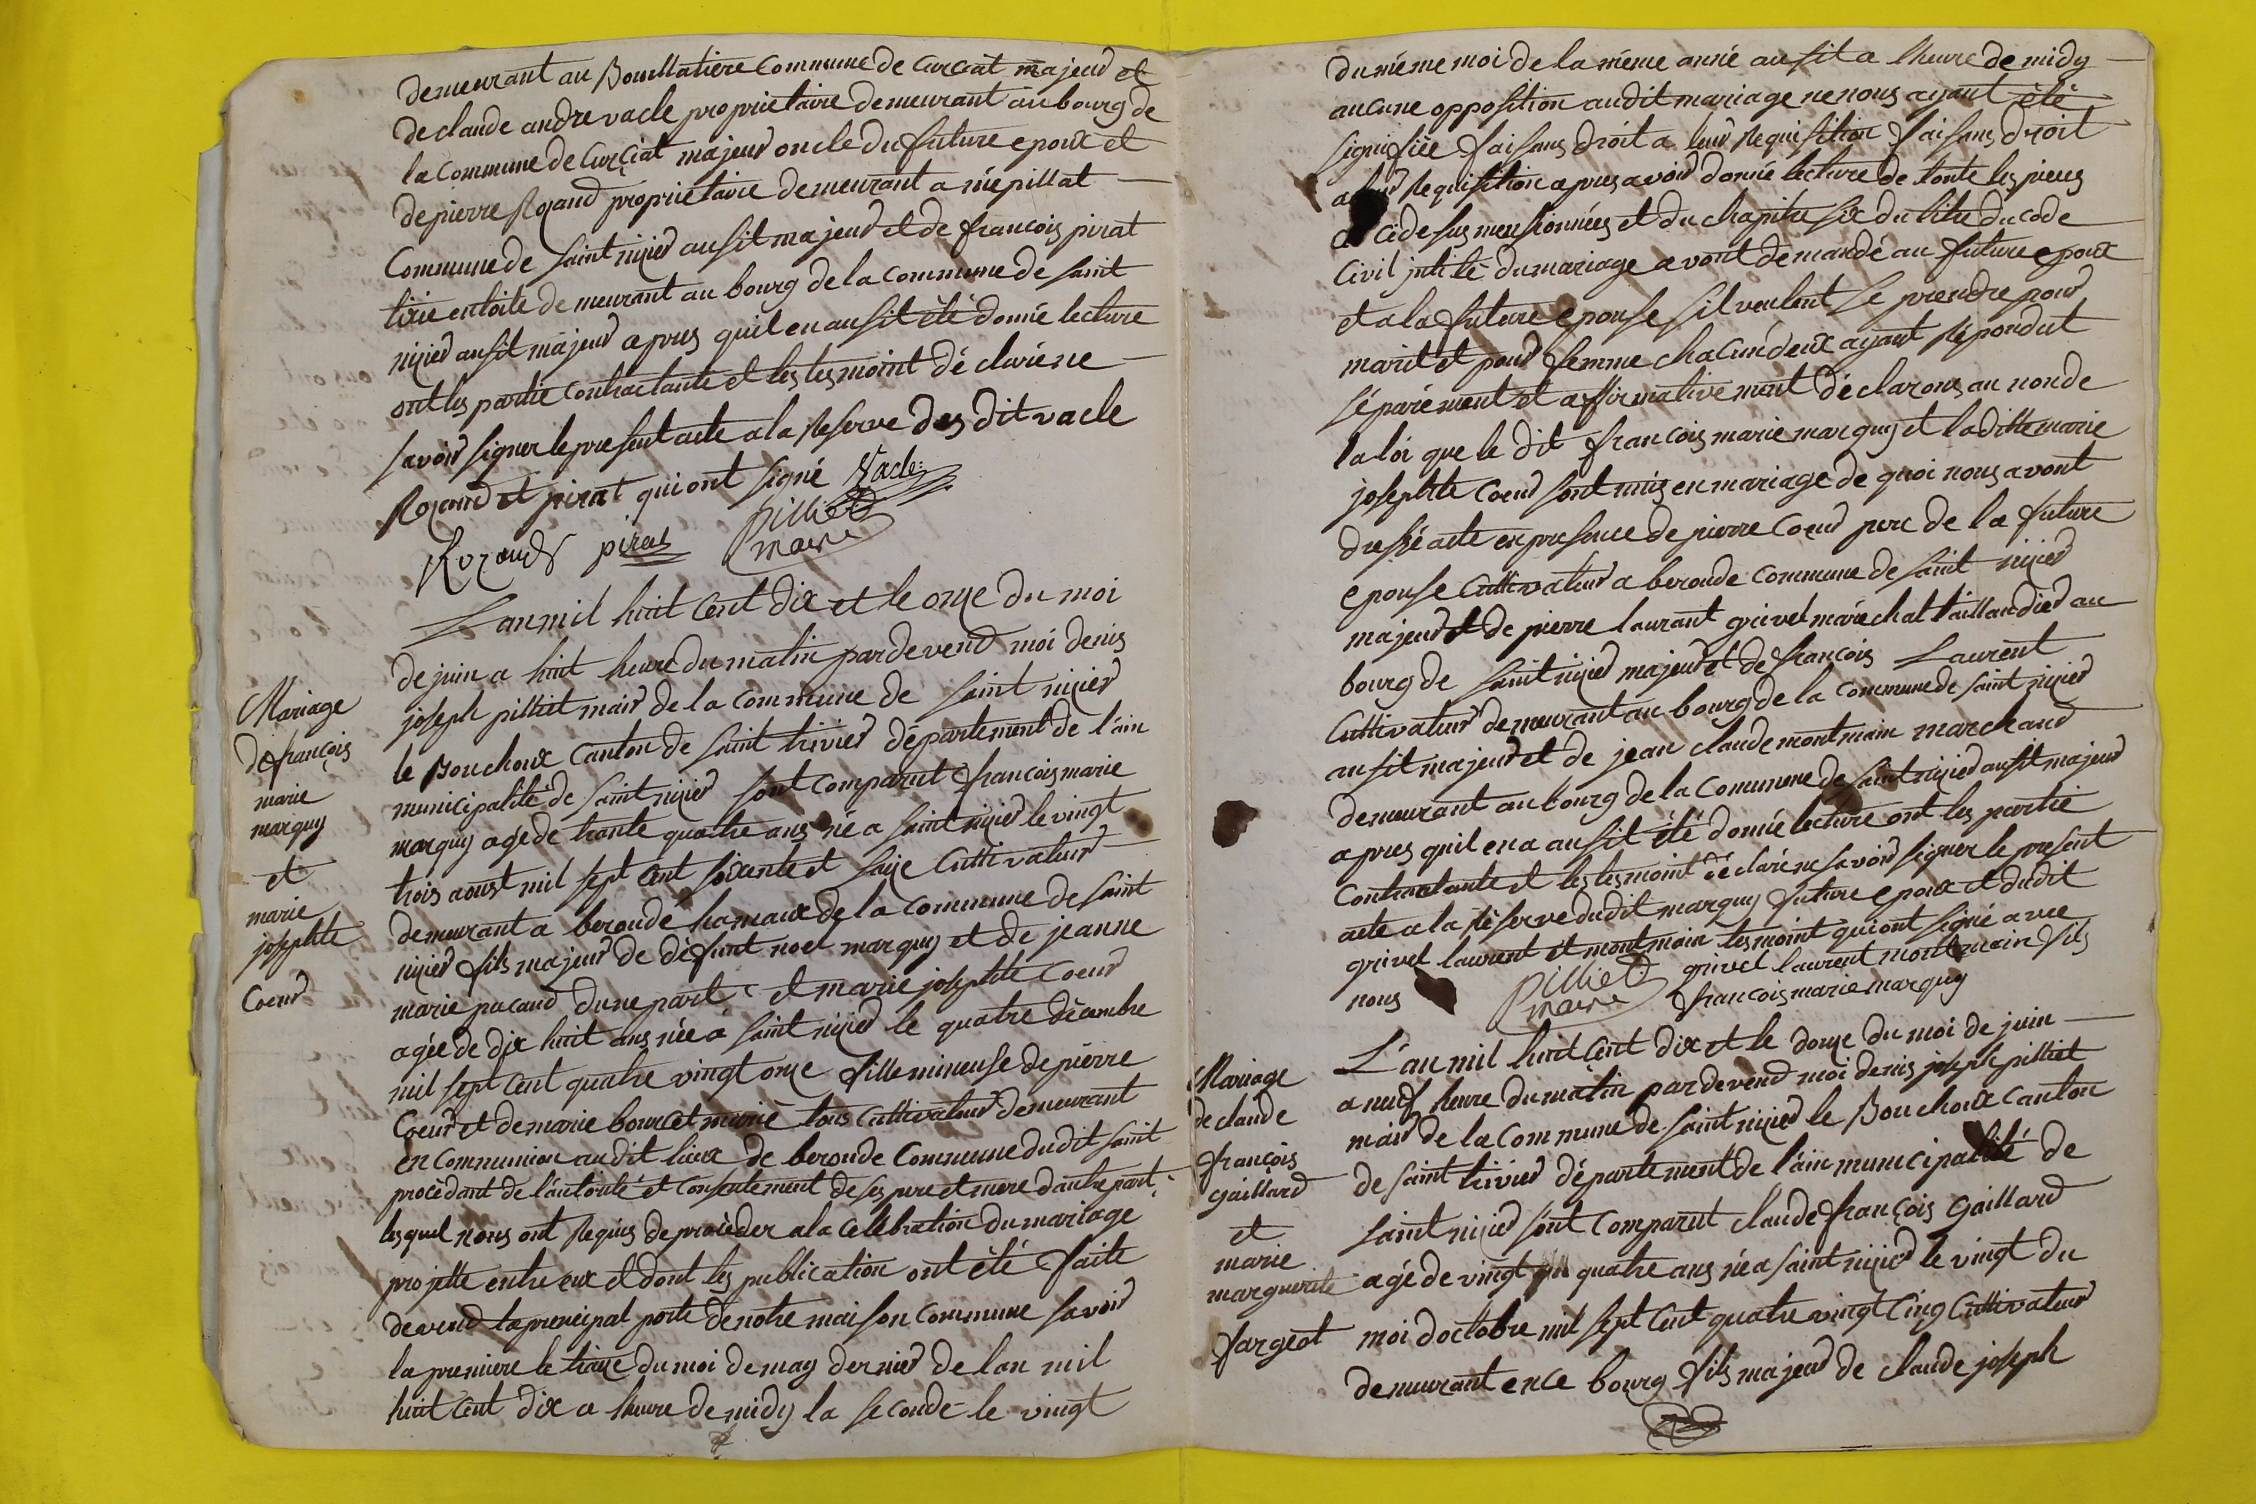 demeurant au Bouillatiere Commune de Curciat majeur et
de claude andre vacle proprietaire demeurant au bourg de
la Commune de Curçiat majeur oncle du future epoux et
de pierre Rozand proprietaire demeurant a népillat
Commune de saint nizier ausit majeur et de françois pirat
demeurant au bourg de la commune de saint
nizier ausit majeur apres quil en ausit été donné lecture
ont les partie contractante et les tesmoint déclaréne
savoir signer le present acte a la Reserve des dit vacle
Rozand et pirat qui ont signé Vacle
Rozand pirat pilliet
maire
L'an mil huit cent dix et le onze du moi
de juin a huit heure du matin pardevend moi denis
joseph pilliet mair de la commune de saint nizier
le Bouchoux Canton de saint trivier département de l'ain
municipalité de saint nizier sont comparut françois marie
marguy age de trante quatre ans né a saint nizier le vingt
trois aoust mil sept cent soixante et saize Cultivateur
demeurant a beronde hamaux de la commune de saint
nizier fils majeur de défunt noel marguy et de jeanne
marie pacaud dune part et marie josephte Coeur
agée de dix huit ans née a saint nizier le quatre décembre
mil sept cent quatre vingt onze fille mineuse de pierre
Coeur et de marie bourcet marié tous Cultivateur demeurant
en communion audit lieux de beronde Commune dudit saint
procédant de l'autorité et consentement de ses pere et mere dautre part
lesquel nous ont Requis de procéder a la celebration du mariage
projette entre eux et dont les publication ont été faite
devend la principal porte de notre maison commune savoir
la premiere le traize du moi de may dernier de lan mil
huit cent dix a lheure de midy la seconde le vingt
Mariage
de françois
marie
marguy
et
marie
josephte
Coeur
du même moi de la même anné ausit a lheure de midy
aucune opposition audit mariage ne nous ayant été
signifiée faisans droit a leur Requisition faisans droit
a leur Requisition apres avoir donné lecture de toute les pieces
ci desus mensionnées et du chapitre six du titre du code
Civil intilé du mariage avont demandé au future epoux
et a la future epouse sil veulent se prendre pour
marit et pour femme chacun deux ayant Répondut
séparément et affirmativement déclarons au nonde
la loi que le dit françois marie marguy et la ditte marie
josephte Coeur sont unis en mariage de quoi nous avont
dressé acte en presence de pierre Coeur pere de la future
epouse Cultivateur a beronde commune de saint nizier
majeur et de pierre laurant grivel maréchal taillandier au
bourg de saint nizier majeur et de françois Laurent
Cultivateur demeurant au bourg de la commune de saint nizier
ausit majeur et de jean claude montmain marchand
demeurant au bourg de la Commune de saint nizier ausit majeur
apres quil en a ausit été donné lecture ont les partie
Contractante et les tesmoint déclaré ne savoir signer le present
acte a la Réserve dudit marguy future epoux et dudit
grivel laurent et montmain tesmoint qui ont signé avec
nous pilliet grivel laurent montmain fils
maire francois marie marguy
L'an mil huit cent dix et le douze du moi de juin
a neuf heure du matin pardevend moi denis joseph pilliet
mair de la Commune de saint nizier le Bouchoux Canton
de saint trivier département de l'ain municipalité de
saint nizier sont comparut claude françois Gaillard
agé de vingt quatre ans né a saint nizier le vingt du
moi doctobre mil sept cent quatre vingt cinq Cultivateur
demeurant en ce bourg fils majeur de claude joseph
Mariage
de claude
françois
gaillard
et
marie
marguerite
fargeot